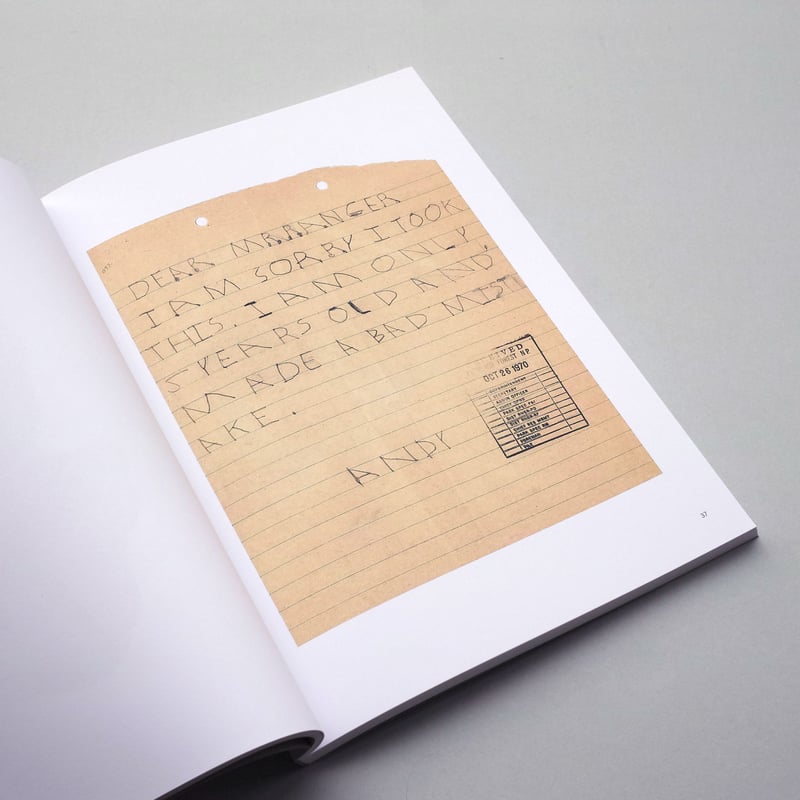 DEAR MR RANGER
I AM SORRY I TOOK
THIS. I AM ONLY
5 YEARS OLD AND
MADE A BAD MIST
AKE.
ANDY
OCT 26 1970
SUPERINTENDENT
SECRETARY
ADMIN OFFICER
37